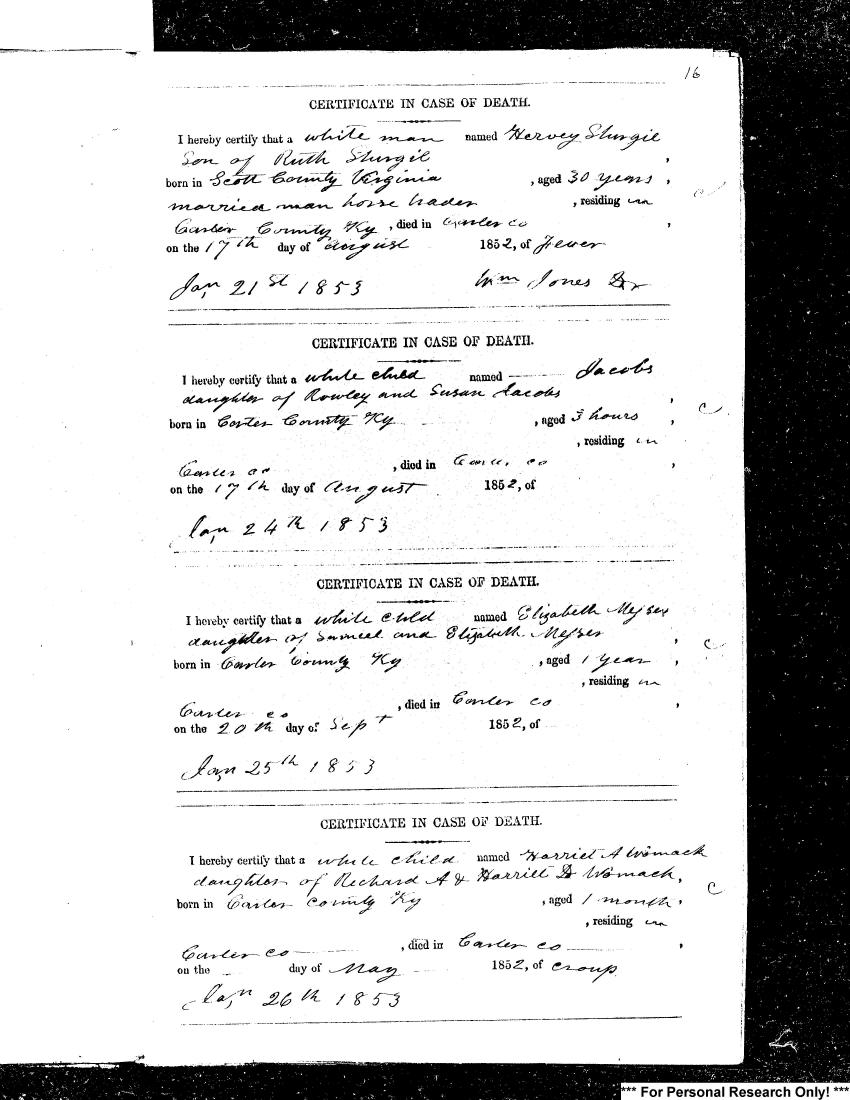 16
CERTIFICATE IN CASE OF DEATH.
I hereby certify that a white man named Hervey Sturgil
Son of Ruth Sturgil ,
born in Scott County Virginia , aged 30 years ,
married man horse trader , residing in
Carter County Ky , died in Carter co ,
on the 17th day of august 1852, of Fever
Jan 21st 1853 Wm Jones Dr
CERTIFICATE IN CASE OF DEATH.
I hereby certify that a white child named Jacobs
daughter of Rowley and Susan Jacobs ,
born in Carter County Ky , aged 3 hours , C
, residing in
Carter co , died in Carter co ,
on the 17th day of August 1852, of
Jan 24th 1853
CERTIFICATE IN CASE OF DEATH.
I hereby certify that a white child named Elizabeth Messer
daughter of Samuel and Elizabeth Messer ,
born in Carter County Ky , aged 1 year , C
, residing in
Carter co , died in Carter co ,
on the 20th day of Sept 1852, of
Jan 25th 1853
CERTIFICATE IN CASE OF DEATH.
I hereby certify that a white child named Harriet A Womack
daughter of Richard A & Harriet D Womack,
born in Carter County Ky , aged 1 month, C
, residing in
Carter co , died in Carter co ,
on the day of May 1852, of croup
Jan 26th 1853
*** For Personal Research Only! ***